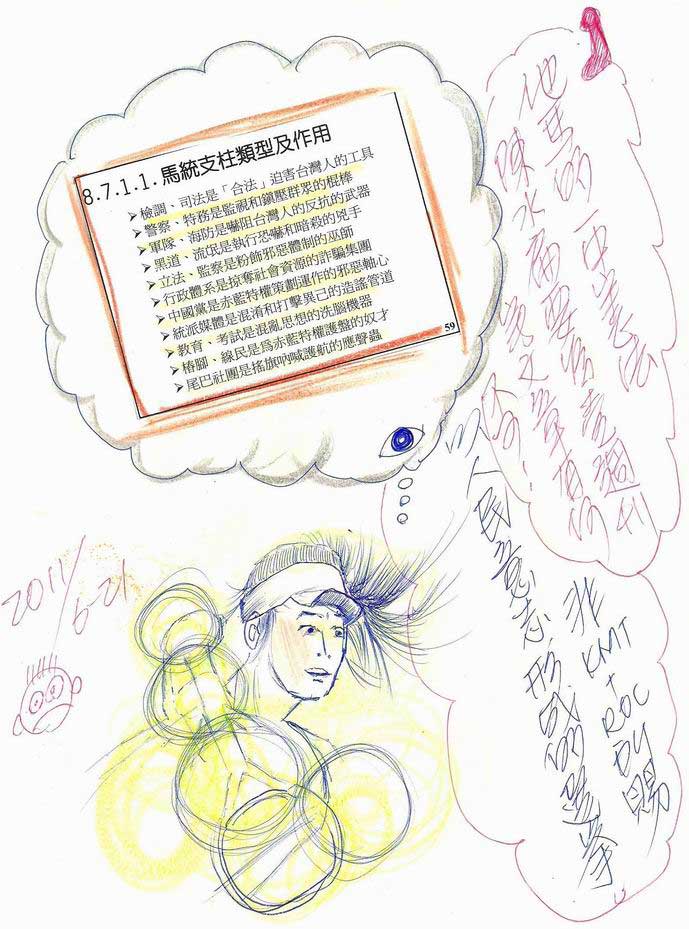 8.7.1.1.馬統支柱類型及作用
➤檢調、司法是「合法」迫害台灣人的工具
➤警察、特務是監視和鎮壓群眾的棍棒
➤軍隊、海防是嚇阻台灣人的反抗的武器
➤黑道、流氓是執行恐嚇和暗殺的兇手
➤立法、監察是粉飾邪惡體制的巫師
➤行政體系是掠奪社會資源的詐騙集團
➤中國黨是赤藍特權策劃運作的邪惡軸心
➤統派媒體是混淆和打擊異己的造謠管道
➤教育、考試是混亂思想的洗腦機器
➤樁腳、線民是為赤藍特權護盤的奴才
➤尾巴社團是搖旗吶喊護航的應聲蟲
59
他馬的
陳水扁
週刊
以人民意志形成的選舉
非KMT+ROC
賜
2011/6-21